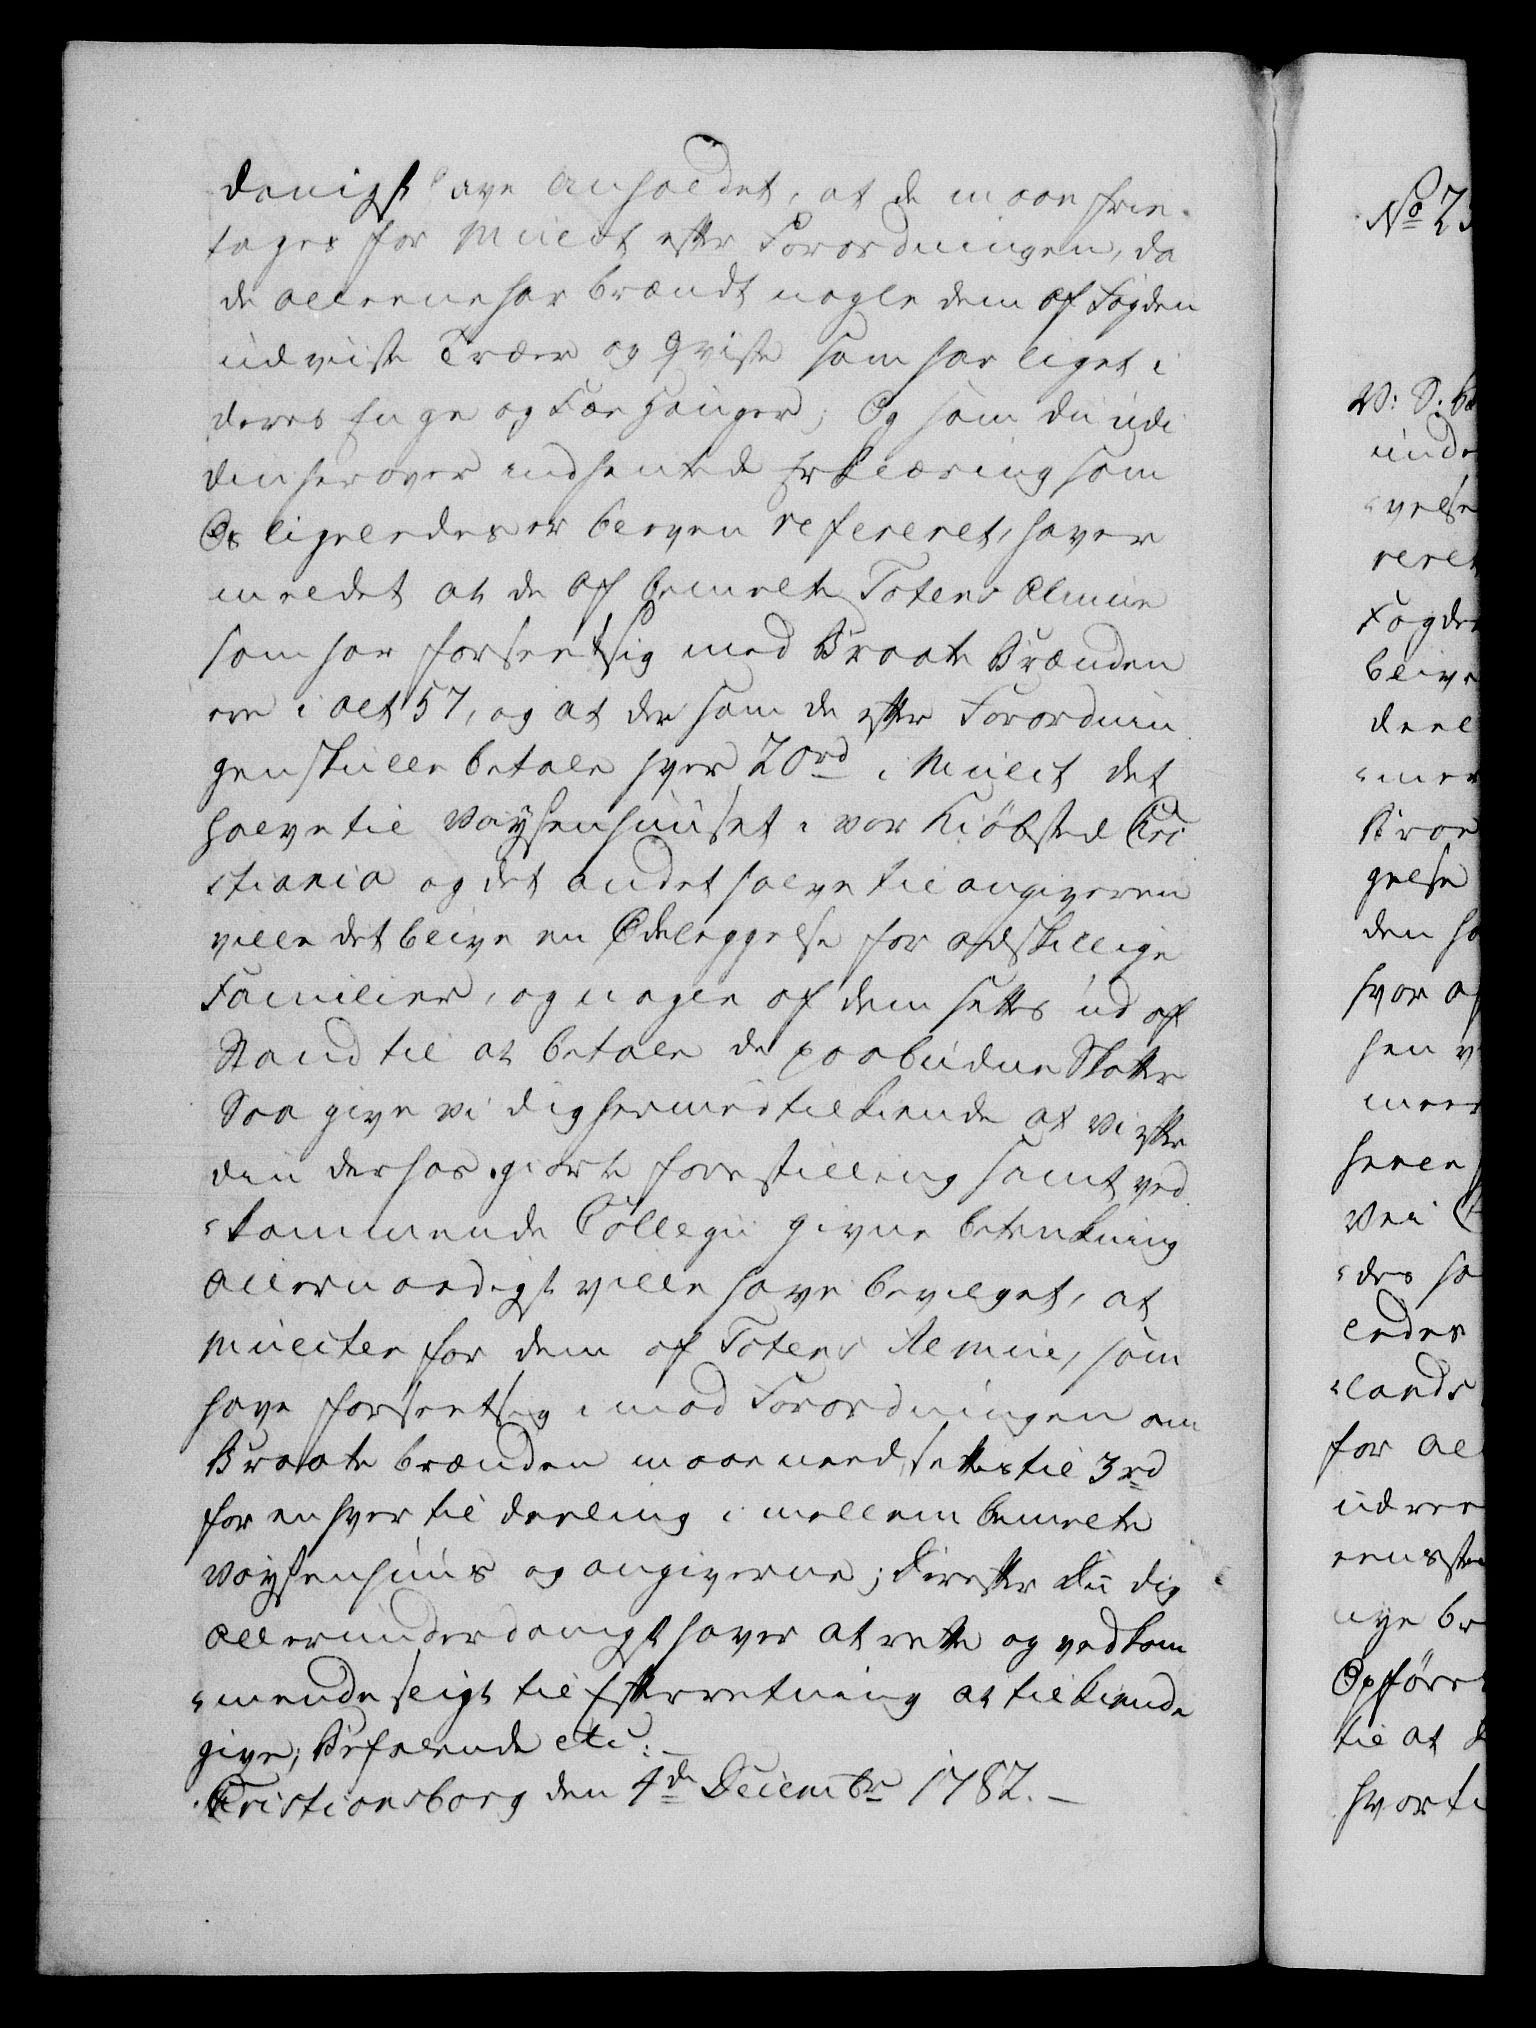 danigst have anholdet, at de maae frie-
tages for Mulct efter Forordningen, da
de alleene har brændt nogle dem af Fogden
udviiste Træer og Qviste som har liget i
deres Enge og Fæe Hauger; Og som du udi
din herover indhentede Erklæring som
Os ligeledes er bleven refereret, haver
meldet at de af bemelte Totens Almue
som har forseet sig med Braate Brænden
ere i alt 57, og at der som de efter Forordnin
gen skulle betale hver 20 rd i Mulct det
halve til Vaysenhuuset i vor Kiøbsted Chri
stiania og det andet halve til angiveren
ville det blive en Ødeleggelse for adskillige
Familier, og nogle af dem settes ud af
Stand til at betale de paabudne Skatter
Saa give vi dig hermed tilkiende at vi efter
din derhos giorte forestilling samt ved
"kommende Collegii givne betænkning
allernaadigst ville have bevilget, at
Mulcten for dem af Totens Almue, som
have forseet sig imod Forordningen om
Braate brænden maae needsettes til 3 rd
for enhver til deeling imellem bemelte
Vaysenhuus og angiverne; Derefter Du dig
allerunderdanigst haver at rette og vedkom
"mende sligt til Efterretning at tilkiende
give; Befalende etc:
Christiansborg den 4de Decembr 1782.
No 23
W: S.
unde
"velse
reret
Fogden
blive
deel
"mer
Braa
gelse
den ha
hvor af
hen v
meer
heele
Vei
"des ha
ledes
"lands
for al
udree
eensste
nye br
Opføre
til at
hvorti